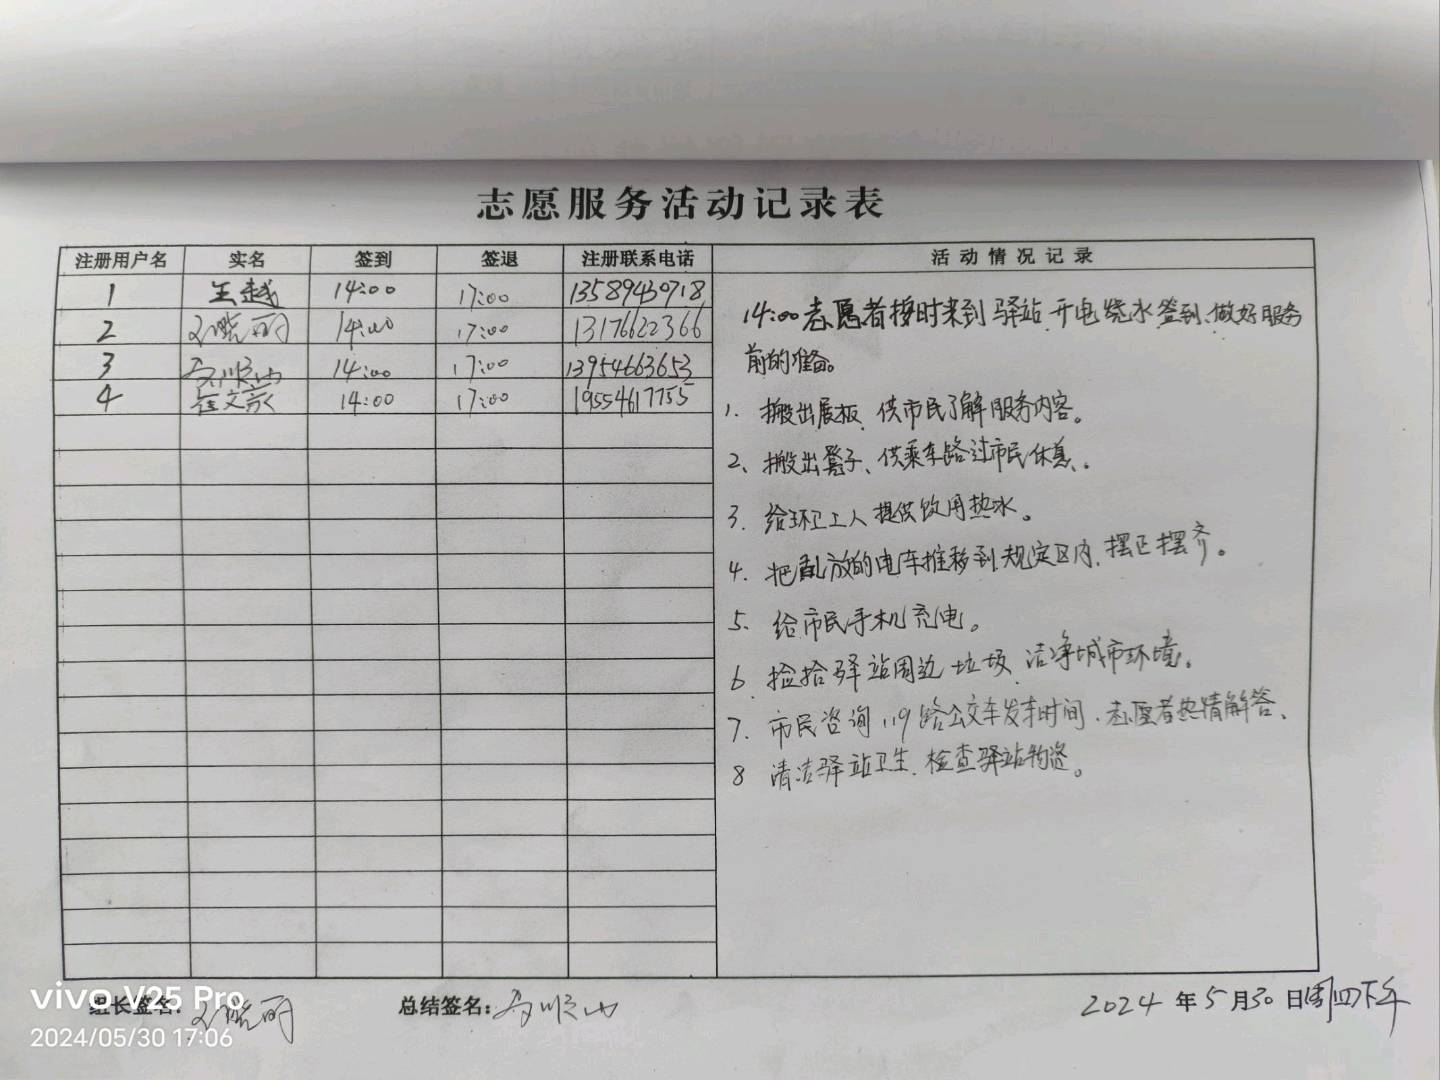 志愿服务活动记录表
注册用户名 实名 签到 签退 注册联系电话 活动情况记录
1 王越 14:00 17:00 13589430718
2 晓丽 14:00 17:00 13176622366
3 顺山 14:00 17:00 13954663653
4 崔文 14:00 17:00 19554617755
14:00志愿者按时来到驿站、开电烧水签到、做好服务
前的准备。
1. 搬出展板、供市民了解服务内容。
2、搬出凳子、供乘车路过市民休息、。
3. 给环卫工人提供饮用热水。
4. 把乱放的电车推移到规定区内、摆正摆齐。
5. 给市民手机充电。
6. 捡拾驿站周边垃圾、洁净城市环境。
7. 市民咨询119路公交车发车时间、志愿者热情解答、
8 清洁驿站卫生、检查驿站物资。
组长签名: 晓丽 总结签名: 顺山 2024年5月30日周四下午
vivo V25 Pro
2024/05/30 17:06